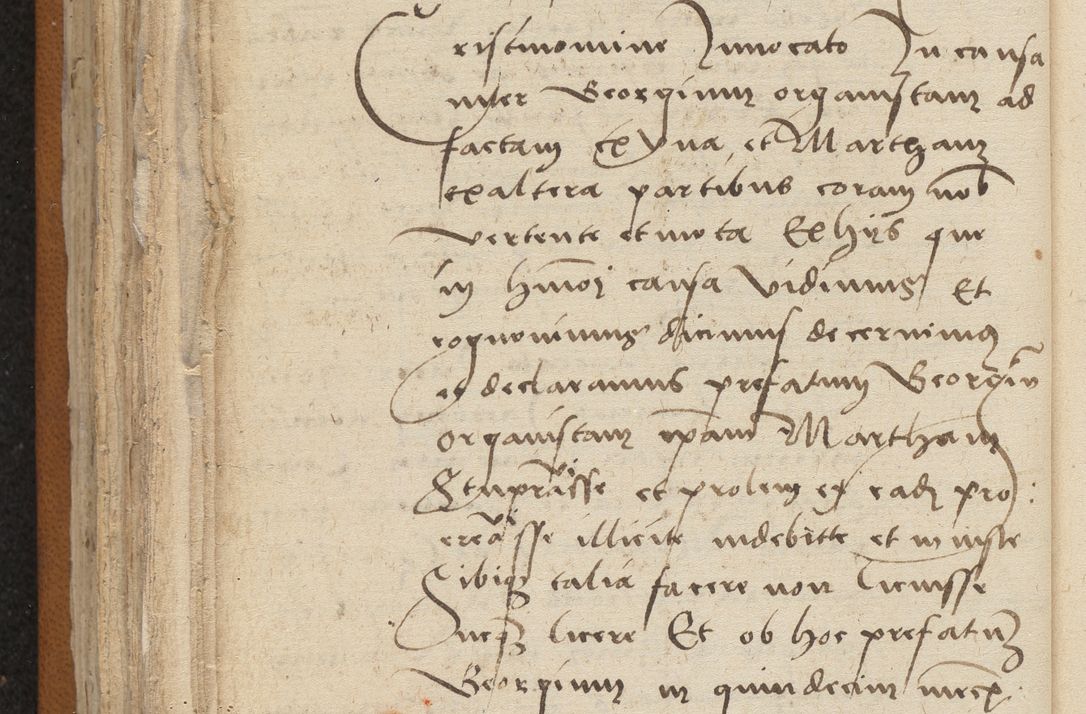 Cristinomine Innocato In causa
inter Georgium organistam ad
factam ex vna, et Martham
exaltera partibus coram nob
vertente et mota Ex hijs que
in hmoi causa vidimus Et
cognouimus dicimus decernimus
et declaramus prefatum Georgiu
organistam ipam Martham
Stuprasse et prolem ex eadē pro:
creasse illicite indebitte et iniuste
Sibiqz talia facere non licuisse
Necqz licere Et ob hoc prefatum
Georgium in quindecim